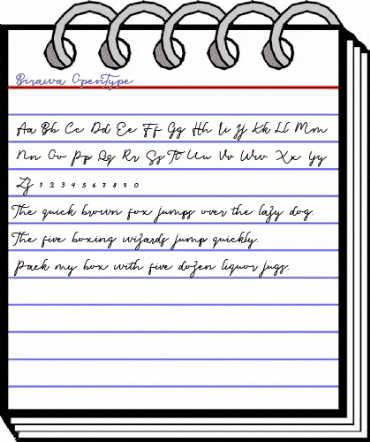 Birawa OpenType
Aa Bb Cc Dd Ee Ff Gg Hh Ii Jj Kk Ll Mm
Nn Oo Pp Qq Rr Ss Tt Uu Vv Ww Xx Yy
Zz 1 2 3 4 5 6 7 8 9 0
The quick brown fox jumps over the lazy dog.
The five boxing wizards jump quickly.
Pack my box with five dozen liquor jugs.